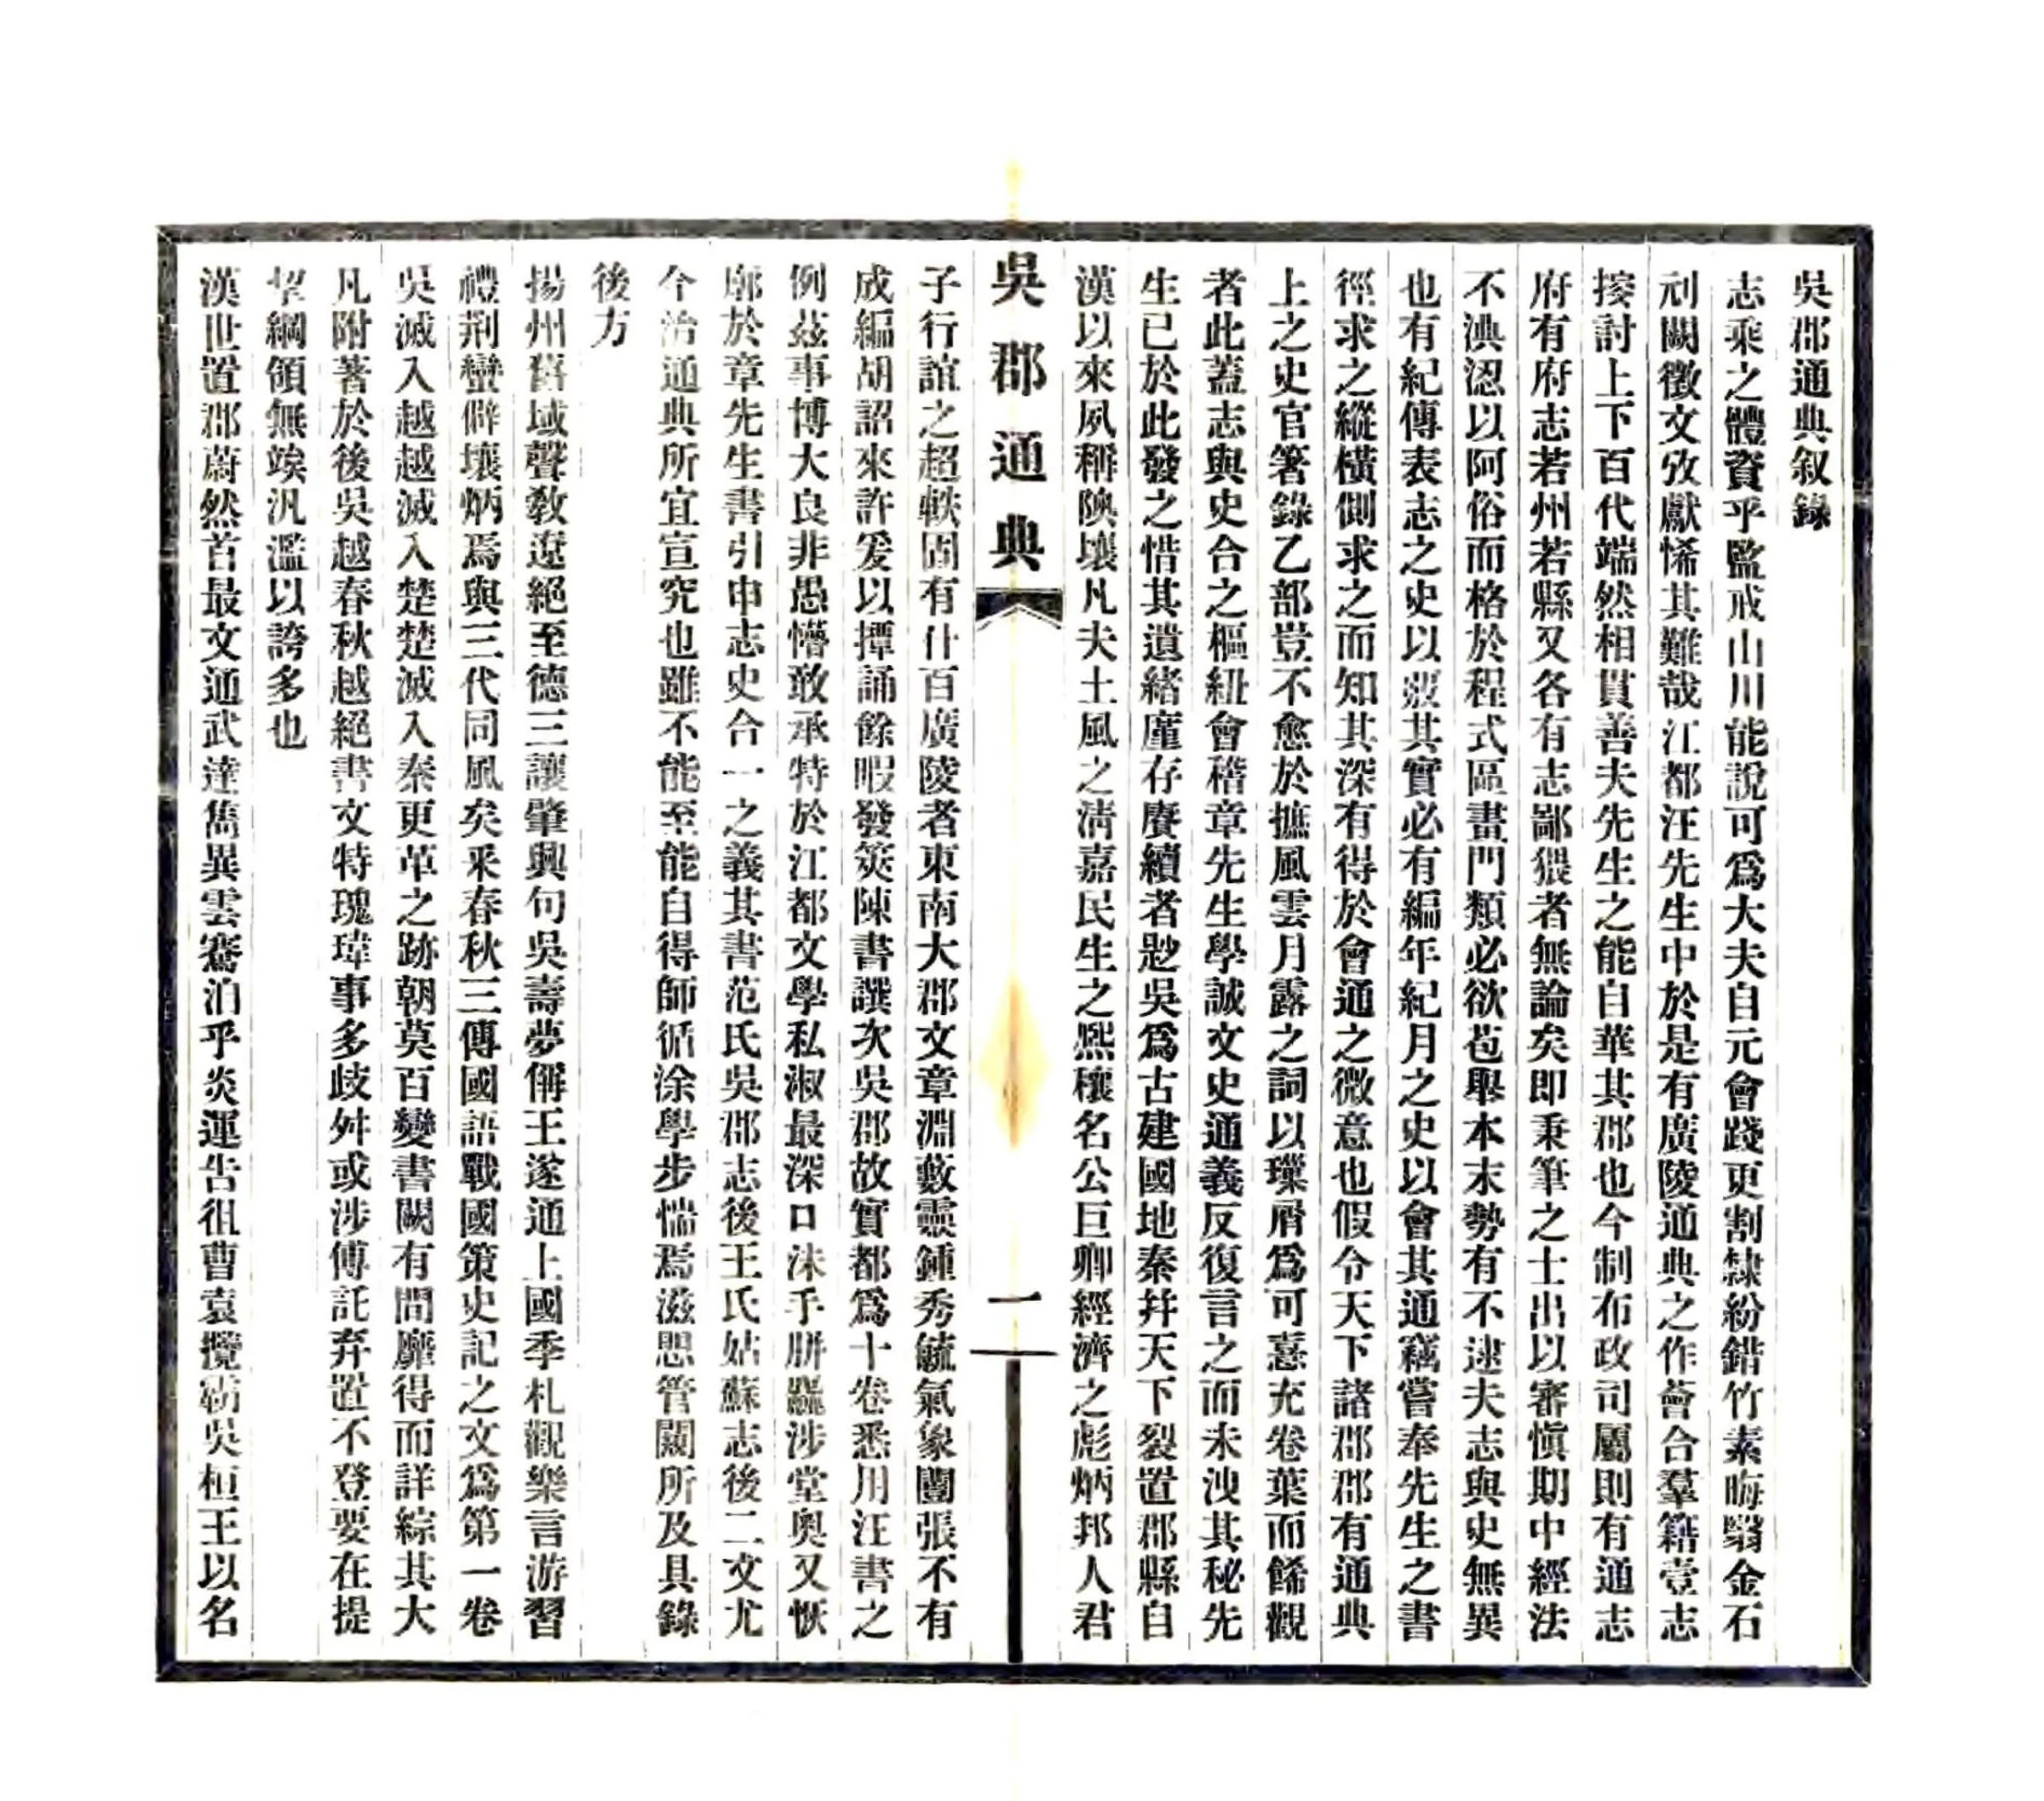 吳郡通典叙錄
志乘之體資乎監戒山川能說可爲大夫自元會踐更割隸紛錯竹素晦翳金石
刓闕徵文攷獻悕其難哉江都汪先生中於是有廣陵通典之作薈合羣籍壹志
搜討上下百代端然相貫善夫先生之能自華其郡也今制布政司屬則有通志
府有府志若州若縣又各有志鄙猥者無論矣即秉筆之士出以審愼期中經法
不淟涊以阿俗而格於程式區畫門類必欲苞舉本末勢有不逮夫志與史無異
也有紀傳表志之史以覈其實必有編年紀月之史以會其通竊嘗奉先生之書
徑求之縱橫側求之而知其深有得於會通之微意也假令天下諸郡郡有通典
上之史官箸錄乙部豈不愈於摭風雲月露之詞以璅屑爲可憙充卷葉而餙觀
者此蓋志與史合之樞紐會稽章先生學誠文史通義反復言之而未洩其秘先
生已於此發之惜其遺緒廑存賡續者尟吳爲古建國地秦幷天下裂置郡縣自
漢以來夙稱陜壤凡夫土風之淸嘉民生之熙穰名公巨卿經濟之彪炳邦人君
吳郡通典
一
子行誼之超軼固有什百廣陵者東南大郡文章淵藪靈鍾秀毓氣象闓張不有
成編胡詔來許爰以撢誦餘暇發篋陳書譔次吳郡故實都爲十卷悉用汪書之
例茲事博大良非愚懵敢承特於江都文學私淑最深口沬手胼麤涉堂奧又恢
廓於章先生書引申志史合一之義其書范氏吳郡志後王氏姑蘇志後二文尤
今治通典所宜宣究也雖不能至能自得師循涂學步惴焉滋愳管闚所及具錄
後方
揚州舊域聲敎遼絕至德三讓肇興句吳壽夢偁王遂通上國季札觀樂言游習
禮荆蠻僻壤炳焉與三代同風矣釆春秋三傳國語戰國策史記之文爲第一卷
吳滅入越越滅入楚楚滅入秦更革之跡朝莫百變書闕有間靡得而詳綜其大
凡附著於後吳越春秋越絕書文特瑰瑋事多歧舛或涉傅託弃置不登要在提
挈綱領無竢汎濫以誇多也
漢世置郡蔚然首最文通武達雋異雲鶱洎乎炎運告徂曹袁攬霸吳桓王以名